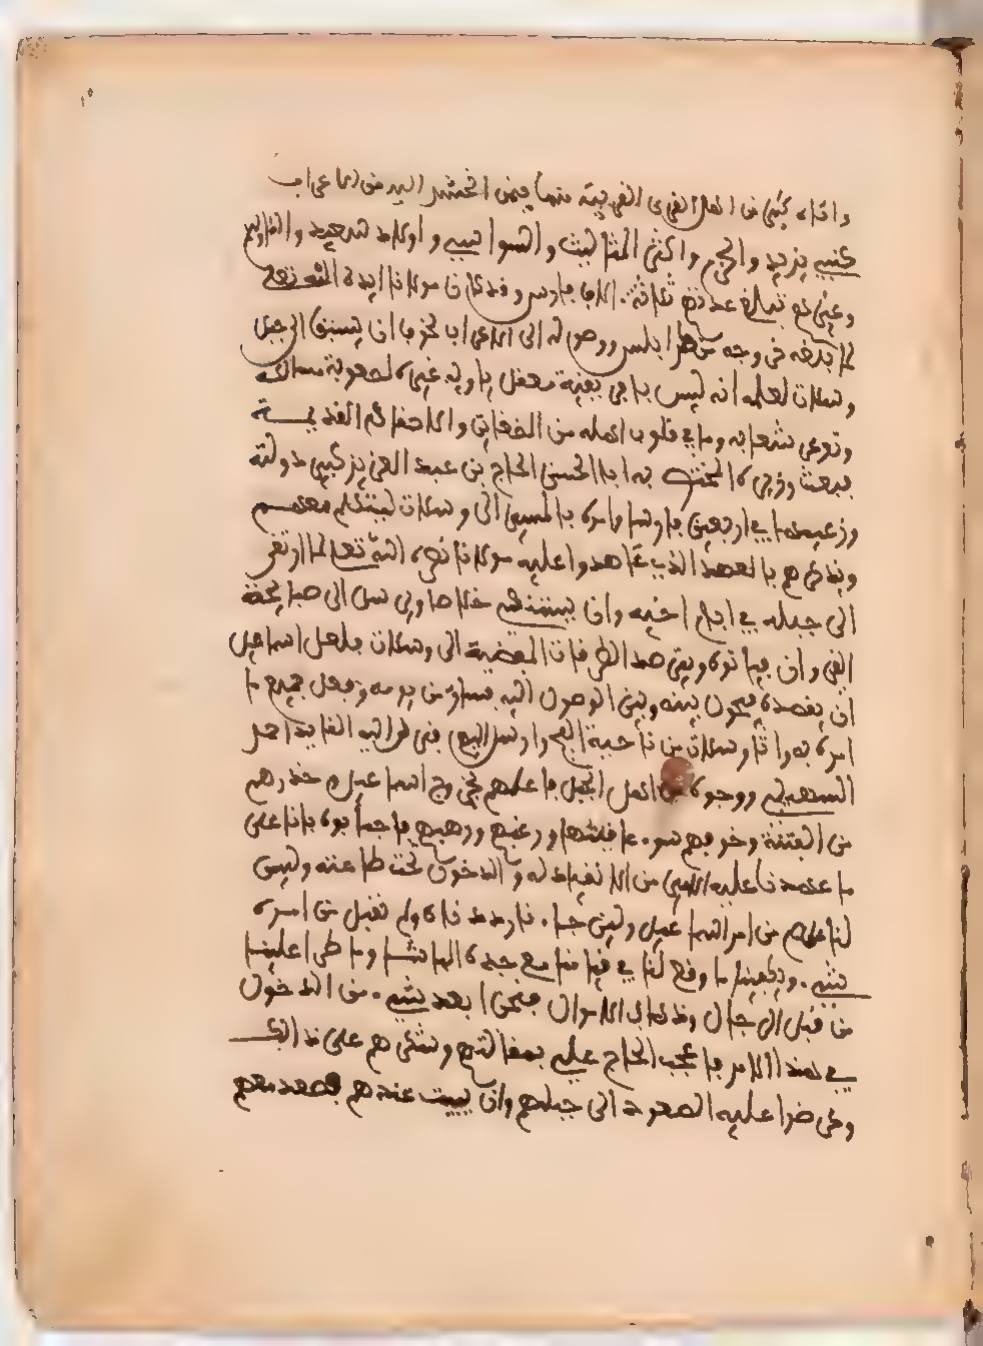 واتاه كثير من اهل القرى القريبة منها فيمن انحشر اليه من الاعراب
كبني يزيد والحجر واكثر المثاليث والسواسي واولاد سعيد والفراوليم
وغيرهم تبلغ عدتهم ثلاثة الاف فارس وقد كان مولانا ايده الله تعالى
لما بلغه خروجه من طرابلس ووصوله الى الاعراب تخوف ان يسبق الى جبل
وسلات لعلمه انه ليس باجريقية معقل ياويه غيره لصعوبة مسالكه
وتوعر شعابه وما في قلوب اهله من الضغاين والاحقاد القديمة
فبعث وزيره المختص به ابا الحسن الحاج بن عبد العزيز كبير دولته
وزعيمها في اربعين فارسا وامره بالمسير الى وسلات ليتكلم معهم
ويذكرهم بالعهد الذي عاهدوا عليه مولانا نصره الله تعالى لما ارتقى
الى جبله في ايام اخيه وان يستنشد خلاصا ويرسل الى صبايحية
القيروان فياتوه ويبقى هذا الطرفان المفضية الى وسلات فلعل اسماعيل
ان يقصده فيحول بينه وبين الوصول اليه فسار من يومه وفعل جميع ما
امره به واتا وسلات من ناحية الفج وارسل اليهم فنزل اليه القايد احمد
السهيلي ووجوه من اهل الجبل فاعلمهم بخروج اسماعيل وحذرهم
من الفتنة وخوفهم سوء عاقبتها ورغبهم ورهبهم فاجابوه بانا على
ما عهدنا عليه الامير من الانقياد له والدخول تحت طاعته وليس
لنا علم من امر اسماعيل ولين جاءنا رددناه ولم نقبل من امره
شيء ويكفينا ما وقع لنا في قيامنا مع جده الباشا وما طرا علينا
من قبل الرجال وذهاب الاموال فنحن ابعد شيء من الدخول
في هذا الامر فاعجب الحاج علي بمقالتهم وشكرهم على ذالك
وعرضوا عليه الصعود الى جبلهم وان يبيت عندهم فصعد معهم